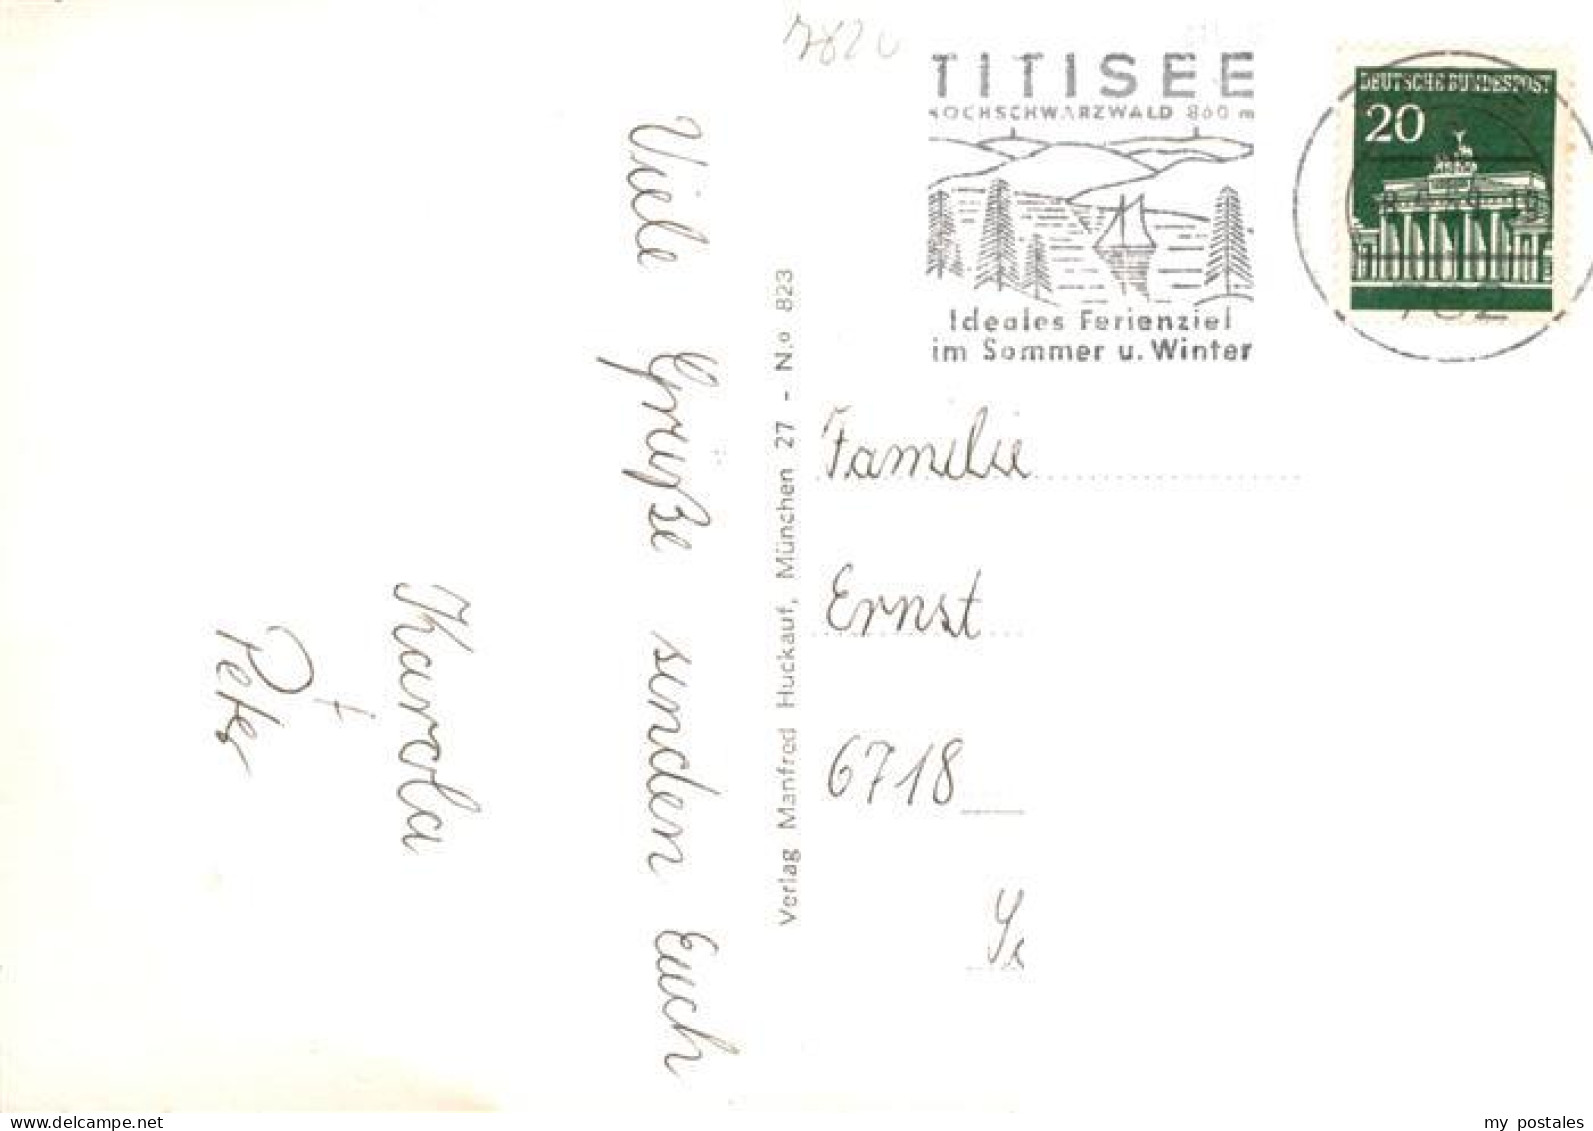 Viele Grüße senden Euch
Karola
+
Peter
Verlag Manfred Huckauf, München 27 - N.º 823
TITISEE
HOCHSCHWARZWALD 860 m
Ideales Ferienziel
im Sommer u. Winter
DEUTSCHE BUNDESPOST
20
Familie
Ernst
6718
www.delcampe.net
my_postales